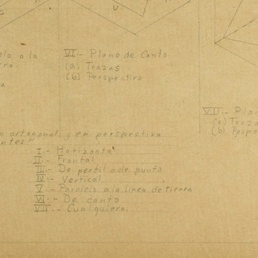 a la
VI - Plano de Canto.
(a) Trazas
(b) Perspectiva
VII - Pla
(a) Traza
(b) Persp
ortogonal, y en perspectiva
I - Horizontal
II - Frontal
III - De perfil o de punta
IV - Vertical
V - Paralelo a la linea de tierra
VI - De canto
VII - Cualquiera.